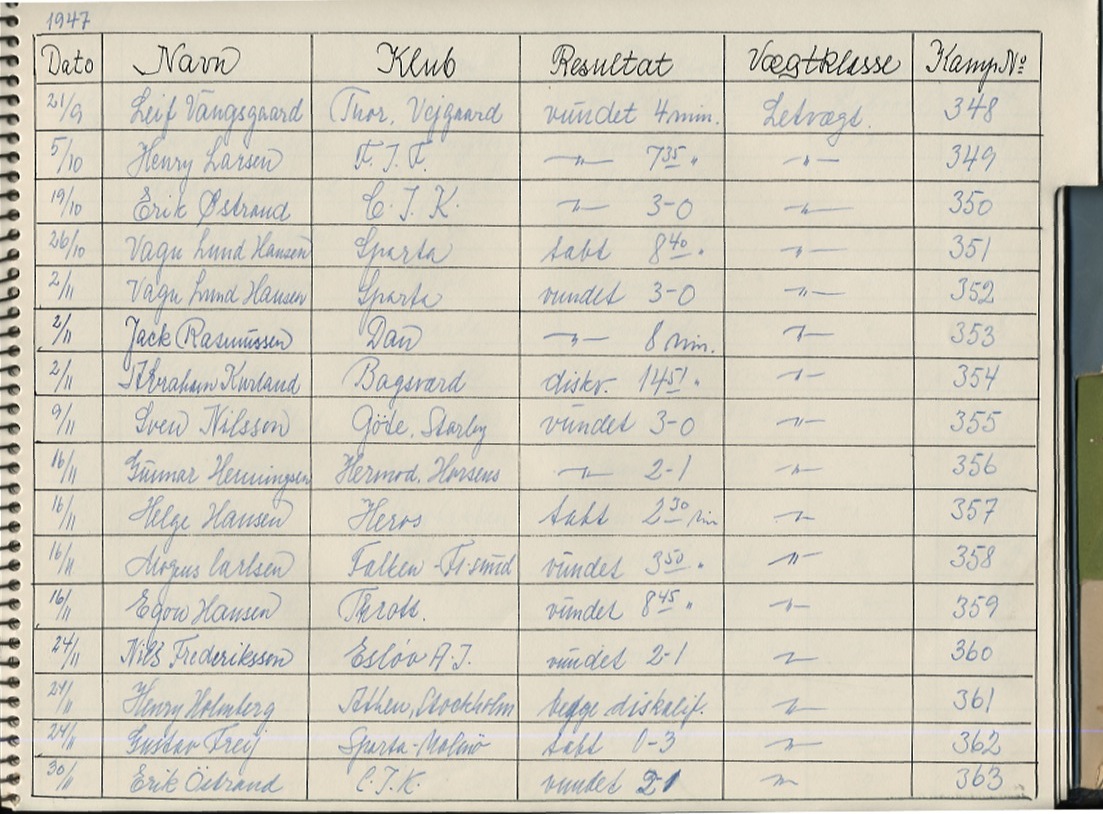 1947
Dato Navn Klub Resultat Vægtklasse Kamp No
21/9 Leif Vangsgaard Thor, Vejgaard vundet 4 min. Letvægt. 348
5/10 Henry Larsen F. I. F. —"— 7 35 " —"— 349
19/10 Erik Østrand C. I. K. —"— 3-0 —"— 350
26/10 Vagn Lund Hansen Sparta tabt 8 40 " —"— 351
2/11 Vagn Lund Hansen Sparta vundet 3-0 —"— 352
2/11 Jack Rasmussen Dan —"— 8 min. —"— 353
2/11 Abraham Kurland Bagsværd diskv. 14 51 " —"— 354
9/11 Sven Nilsson Göte, Starby vundet 3-0 —"— 355
16/11 Gunnar Henningsen Hermod, Horsens —"— 2-1 —"— 356
16/11 Helge Hansen Heros tabt 2 30 min —"— 357
16/11 Mogens Carlsen Falken Fr.sund vundet 3 50 " —"— 358
16/11 Egon Hansen Thrott. vundet 8 45 " —"— 359
24/11 Nils Frederiksson Eslöv A.I. vundet 2-1 —"— 360
24/11 Henry Holmberg Athen, Stockholm begge diskalif. —"— 361
24/11 Gustav Freij Sparta-Malmö tabt 0-3 —"— 362
30/11 Erik Östrand C.I.K. vundet 2-1 —"— 363